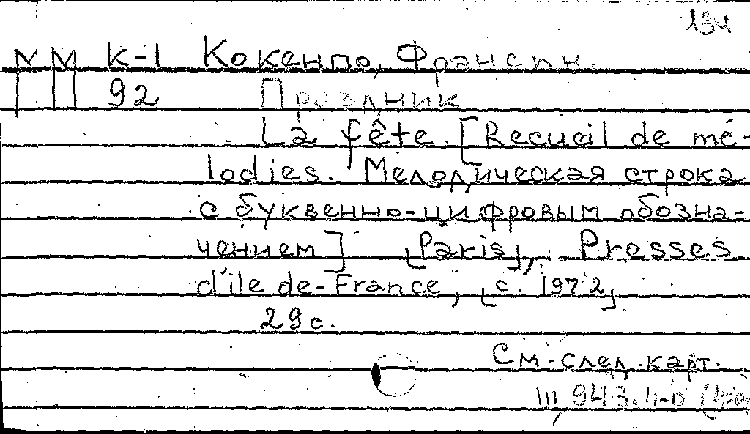 134
М М К-1 Кокемпо, Франсин.
92 Праздник
La fête. [Recueil de mé-
lodies. Мелодическая строка
с буквенно-цифровым обозна-
чением] [Paris], Presses
d'ile de-France, [c. 1972]
29 с.
См. след. карт.